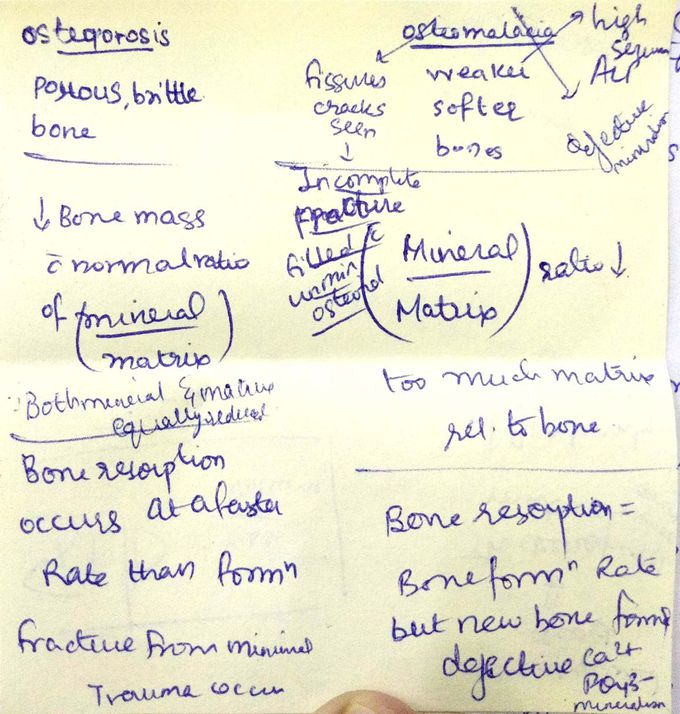 osteoporosis
porous, brittle
bone
↓ Bone mass
c̄ normal ratio
of (mineral
matrix)
∵ Both mineral & matrix
equally reduced
Bone resorption
occurs at a faster
Rate than formⁿ
fracture from minimal
Trauma occur
osteomalacia
high
serum
ALP
defective
fissures
cracks
seen
↓
Incomplete
fracture
filled c̄
unmin
osteoid
weaker
softer
bones
(Mineral
Matrix) ratio ↓
too much matrix
rel. to bone
Bone resorption =
Bone formⁿ Rate
but new bone formed
defective Ca2+
PO43-